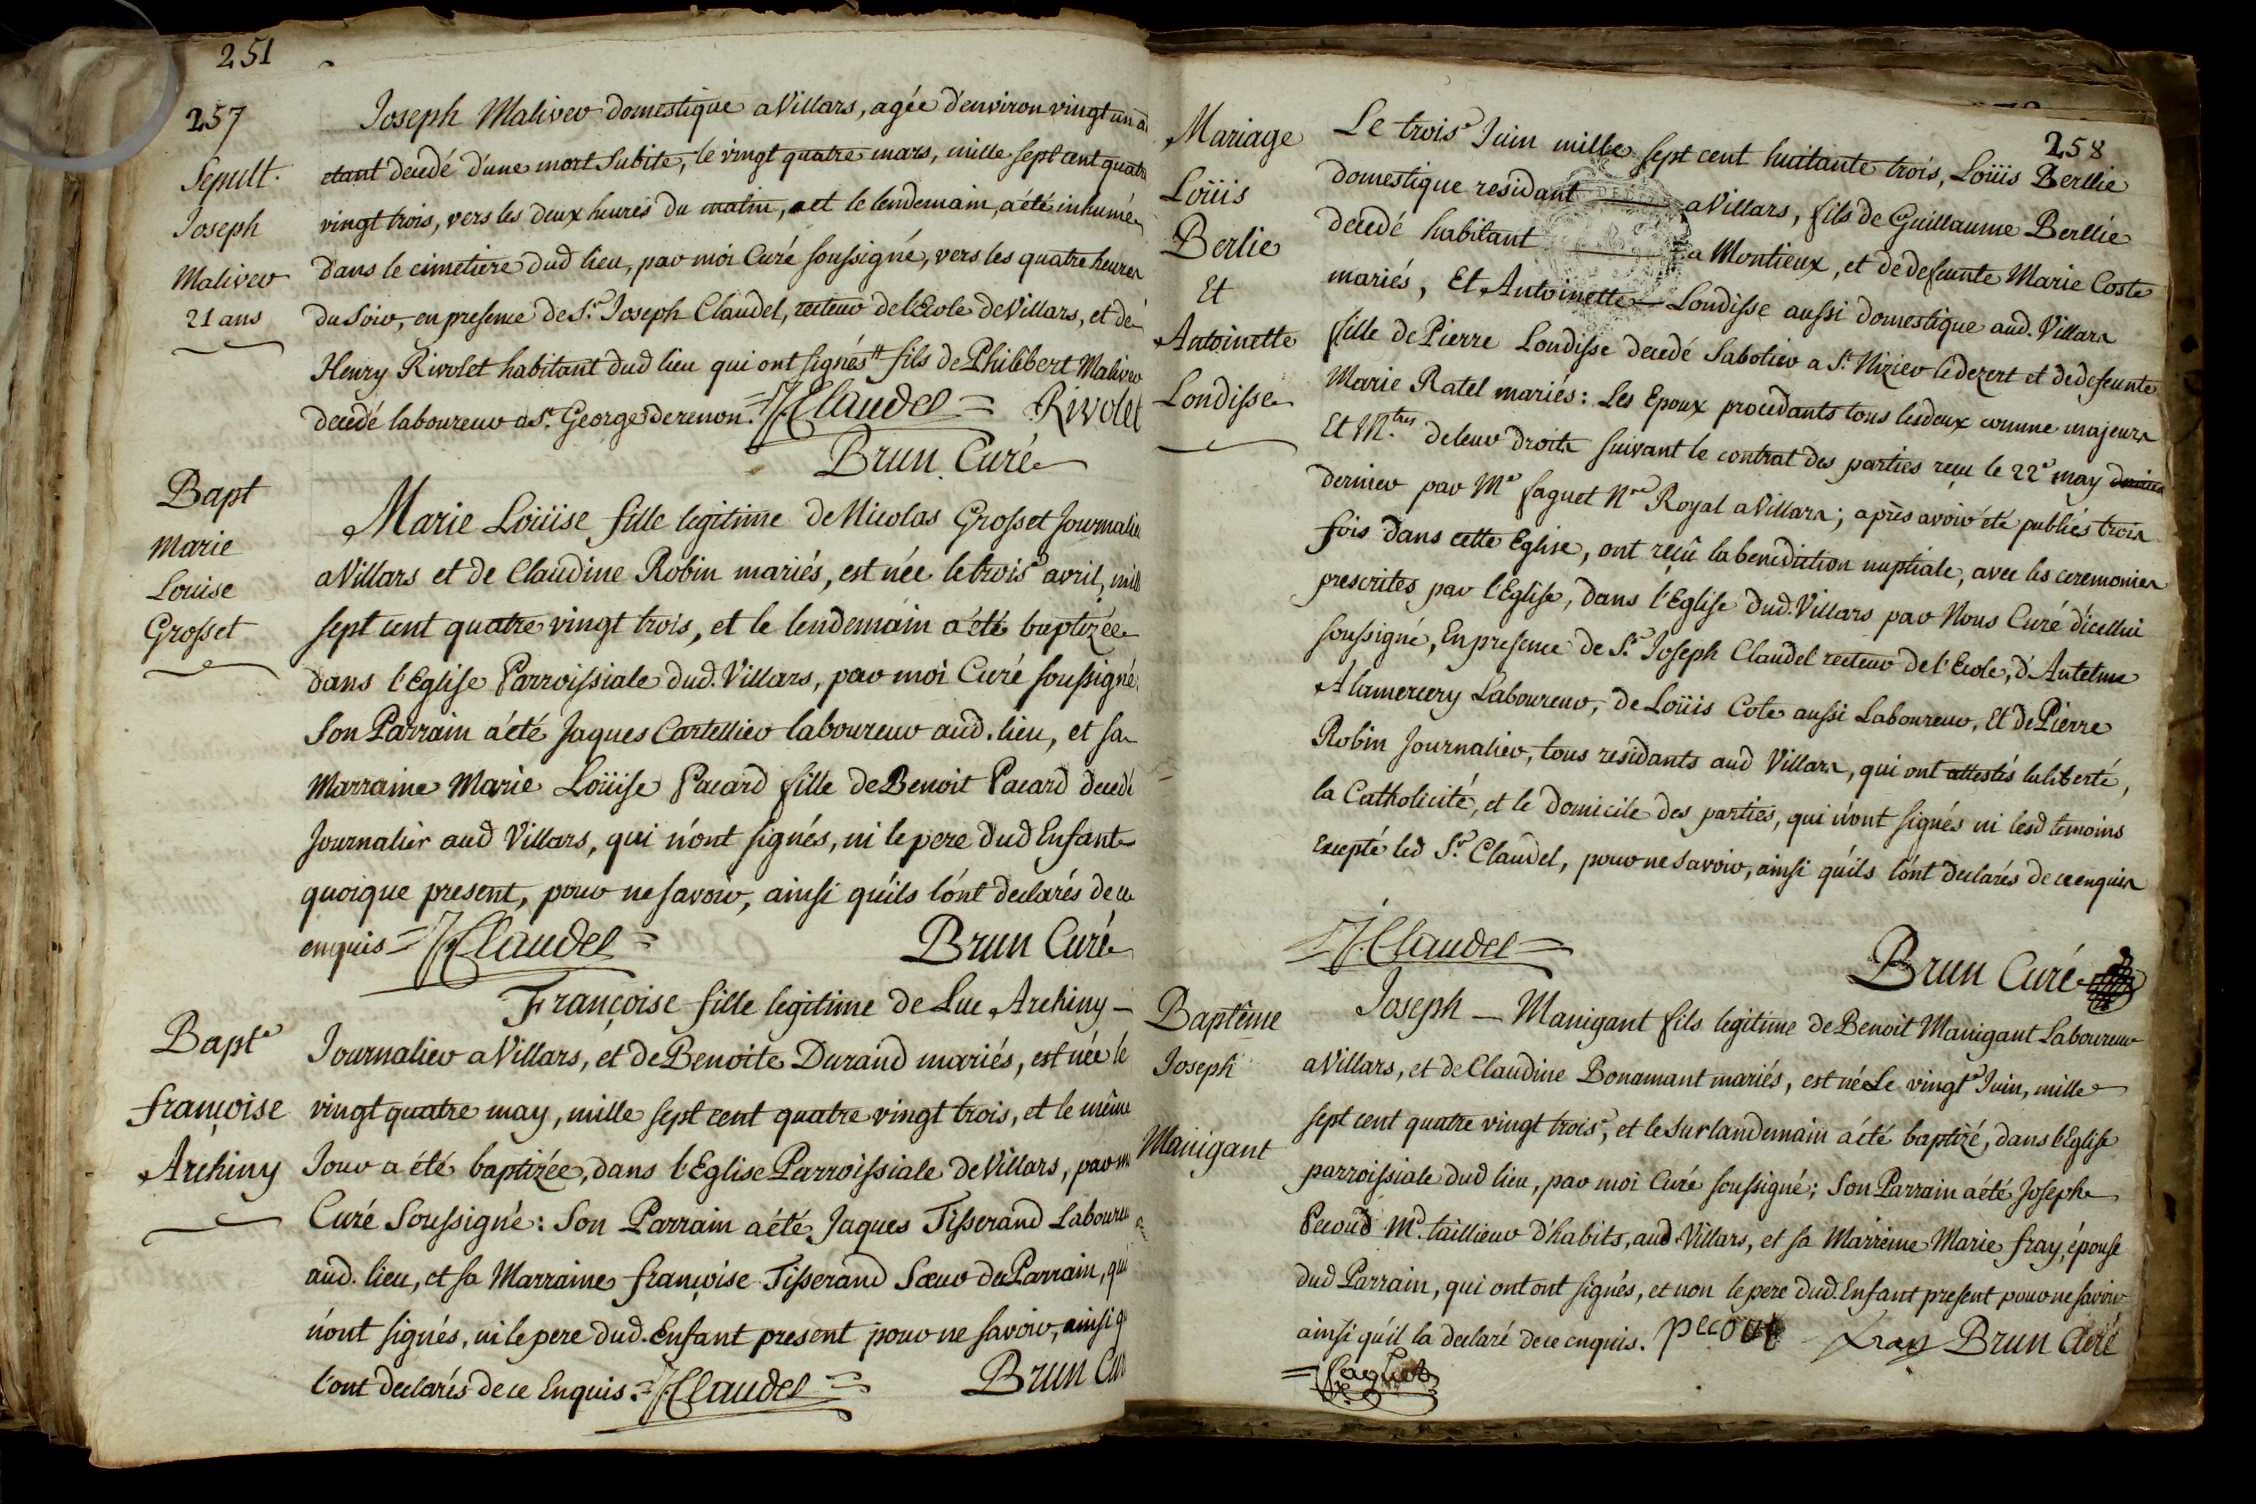 251
257
Sepult.
Joseph
Maliver
21 ans
Joseph Maliver domestique a Villars, agée d'environ vingt un
etant decedé d'une mort subite, le vingt quatre mars, mille sept cent quatre
vingt trois, vers les deux heures du matin, et le lendemain, a été inhumé
dans le cimetiere dud lieu, par moi Curé soussigné, vers les quatre heures
du Soir, en presence de Sr. Joseph Claudel, recteur de l'Ecole de Villars, et de
Henry Rivolet habitant dud lieu qui ont signés fils de Philibert Maliver
decedé laboureur a St. George derenon. = J Claudel = Rivolet
Brun Curé
Bapt
Marie
Louise
Grosset
Marie Loüise fille legitime de Nicolas Grosset Journalie
a Villars et de Claudine Robin mariés, est née le troise avril, mill
sept cent quatre vingt trois, et le lendemain a été baptizée
dans l'Eglise Parroissiale dud. Villars, par moi Curé soussigné
Son Parrain a été Jaques Cartellier laboureur aud. lieu, et sa
Marraine Marie Loüise Pacard fille de Benoit Pacard decedé
Journalier aud Villars, qui n'ont signés, ni le pere dud Enfant
quoique present, pour ne savoir, ainsi qu'ils l'ont declarés de ce
enquis = J Claudel = Brun Curé
Bapte
françoise
Archiny
Françoise fille legitime de Luc Archiny —
Journalier a Villars, et de Benoite Durand mariés, est née le
vingt quatre may, mille sept cent quatre vingt trois, et le même
Jour a été baptizée, dans l'Eglise Parroissiale de Villars, par m
Curé Soussigné: Son Parrain a été Jaques Tisserand Laboureu
aud. lieu, et sa Marraine françoise Tisserand Sœur du Parrain, qui
n'ont signés, ni le pere dud. Enfant present pour ne savoir, ainsi q
l'ont declarés de ce Enquis. = J Claudel = Brun Cur
258
Mariage
Loüis
Berlie
Et
Antoinette
Londisse
Le troise Juin mille sept cent huitante trois, Loüis Berllie
domestique residant — a Villars, fils de Guillaume Berllie
decedé habitant — a Montieux, et de defeunte Marie Coste
mariés, Et Antoinette — Londisse aussi domestique aud. Villars
fille de Pierre Londisse decedé Sabotier a St Nizier le dezert et de defeunte
Marie Ratel mariés: Les Epoux procedants tous les deux comme majeurs
Et M.tres de leur droits suivant le contrat des parties reçu le 22e may dernier
dernier par Me faguet Nre Royal a Villars; après avoir été publiés trois
fois dans cette Eglise, ont reçû la benediction nuptiale, avec les ceremonies
prescrites par l'Eglise, dans l'Eglise dud. Villars par Nous Curé d'icellui
soussigné, En presence de Sr. Joseph Claudel recteur de l'Ecole, d'Antelme
Alamercery Laboureur, de Loüis Cote aussi Laboureur, Et de Pierre
Robin Journalier, tous residants aud Villars, qui ont attestés la liberté,
la Catholicité, et le domicile des parties, qui n'ont signés ni lesd temoins
Excepté led Sr. Claudel, pour ne savoir, ainsi qu'ils l'ont declarés de ce enquis
= J. Claudel =
Brun Curé
Baptême
Joseph
Manigant
Joseph — Manigant fils legitime de Benoit Manigant Laboureur
a Villars, et de Claudine Bonamant mariés, est né Le vingte Juin, mille
sept cent quatre vingt trois, et le Surlandemain a été baptizé, dans l'Eglise
parroissiale dud lieu, par moi Curé soussigné; Son Parrain a été Joseph
Pecoud Md. taillieur d'habits, aud Villars, et sa Marreine Marie fray, épouse
dud Parrain, qui ont ont signés, et non le pere dud. Enfant present pour ne savoir
ainsi qu'il la declaré de ce enquis. pecout fray Brun Curé
= faguet